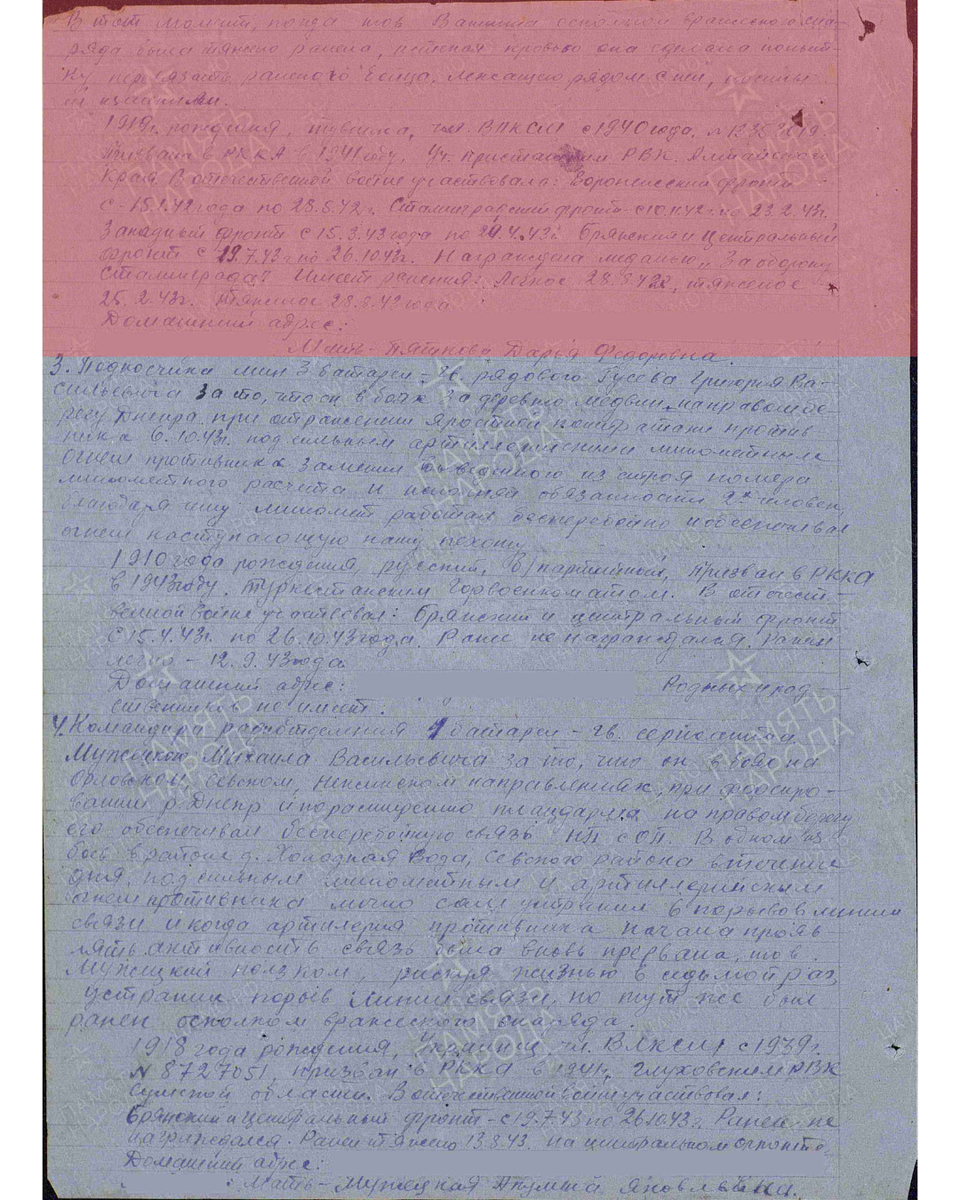 В тот момент, когда тов Вагина осколком вражеского сна-
ряда была тяжело ранена, истекая кровью она сделала попыт-
ку перевязать раненого бойца, лежащего рядом с ней,
1919г. рождения, чл. ВЛКСМ с 1940 года, №
Призвана в РККА в 1941 году. Уч. Пристанским РВК. Алтайского
Края. В отечественной войне участвовала: Воронежский фронт
с - 15.1.42 года по 28.8.42 г. Сталинградский фронт с 10. по 23.2.43г.
Западный фронт с 15.3.43 года по 24.4.43г. Брянский и Центральный
фронт с 19.7.43г. по 26.10.43г. Награждена медалью „За оборону
Сталинграда". Имеет ранения: Легкое 28.8.42г, тяжелое -
25.2.43г. тяжелое 28.8.43 года
Домашний адрес:
Мать - Дарья Федоровна.
3. Подносчика мин 3 батареи - гв. рядового Гусева Григория Ва-
сильевича За то, что он в боях за деревню на правом бе-
регу Днепра при отражении яростной контратаки против-
ника 6.10.43г. под сильным артиллерийским минометным
огнем противника заменил выведенного из строя номера
минометного расчета и исполнял обязанности 2х человек
благодаря чему миномет работал бесперебойно и обеспечивал
огнем наступающую нашу пехоту
1910 года рождения, русский, б/партийный, Призван в РККА
в 1943 году. Туркестанским Горвоенкоматом. В отечест-
венной войне участвовал: Брянский и центральный фронт
с 15.4.43г. по 26.10.43 года. Ранее не награждался. Ранен
легко - 12.9.43 года
Домашний адрес: Родных и род-
ственников не имеет.
4. Командира радиоотделения 1 батареи - гв. сержанта
Мужецкого Михаила Васильевича за то, что он в боях на
Орловском, Севском, направлениях, при форсиро-
вании р. Днепр и по расширению плацдарма на правом берегу
его обеспечивал бесперебойную связь НП с ОП. В одном из
боев в районе д. Холодная Вода, Севского района в течение
дня, под сильным минометным и артиллерийским
огнем противника лично сам устранил 6 порывов линии
связи и когда артилерия противника начала прояв-
лять активность связь была вновь прервана, тов.
Мужецкий ползком, рискуя жизнью в седьмой раз
устранил порыв линии связи, но тут же был
ранен осколком вражеского снаряда.
1918 года рождения, Украинец, чл. ВЛКСМ с 1939г.
№ 8727051. Призван в РККА в 1941г. Глуховским РВК
Сумской области. В отечественной войне участвовал:
Брянский и центральный фронт - с 19.7.43 по 26.10.43г. Ранее не
награждался. Ранен тяжело 13.8.43. на центральном фронте.
Домашний адрес:
Мать - Мужецкая Яковлевна.
ПАМЯТЬ
НАРОДА